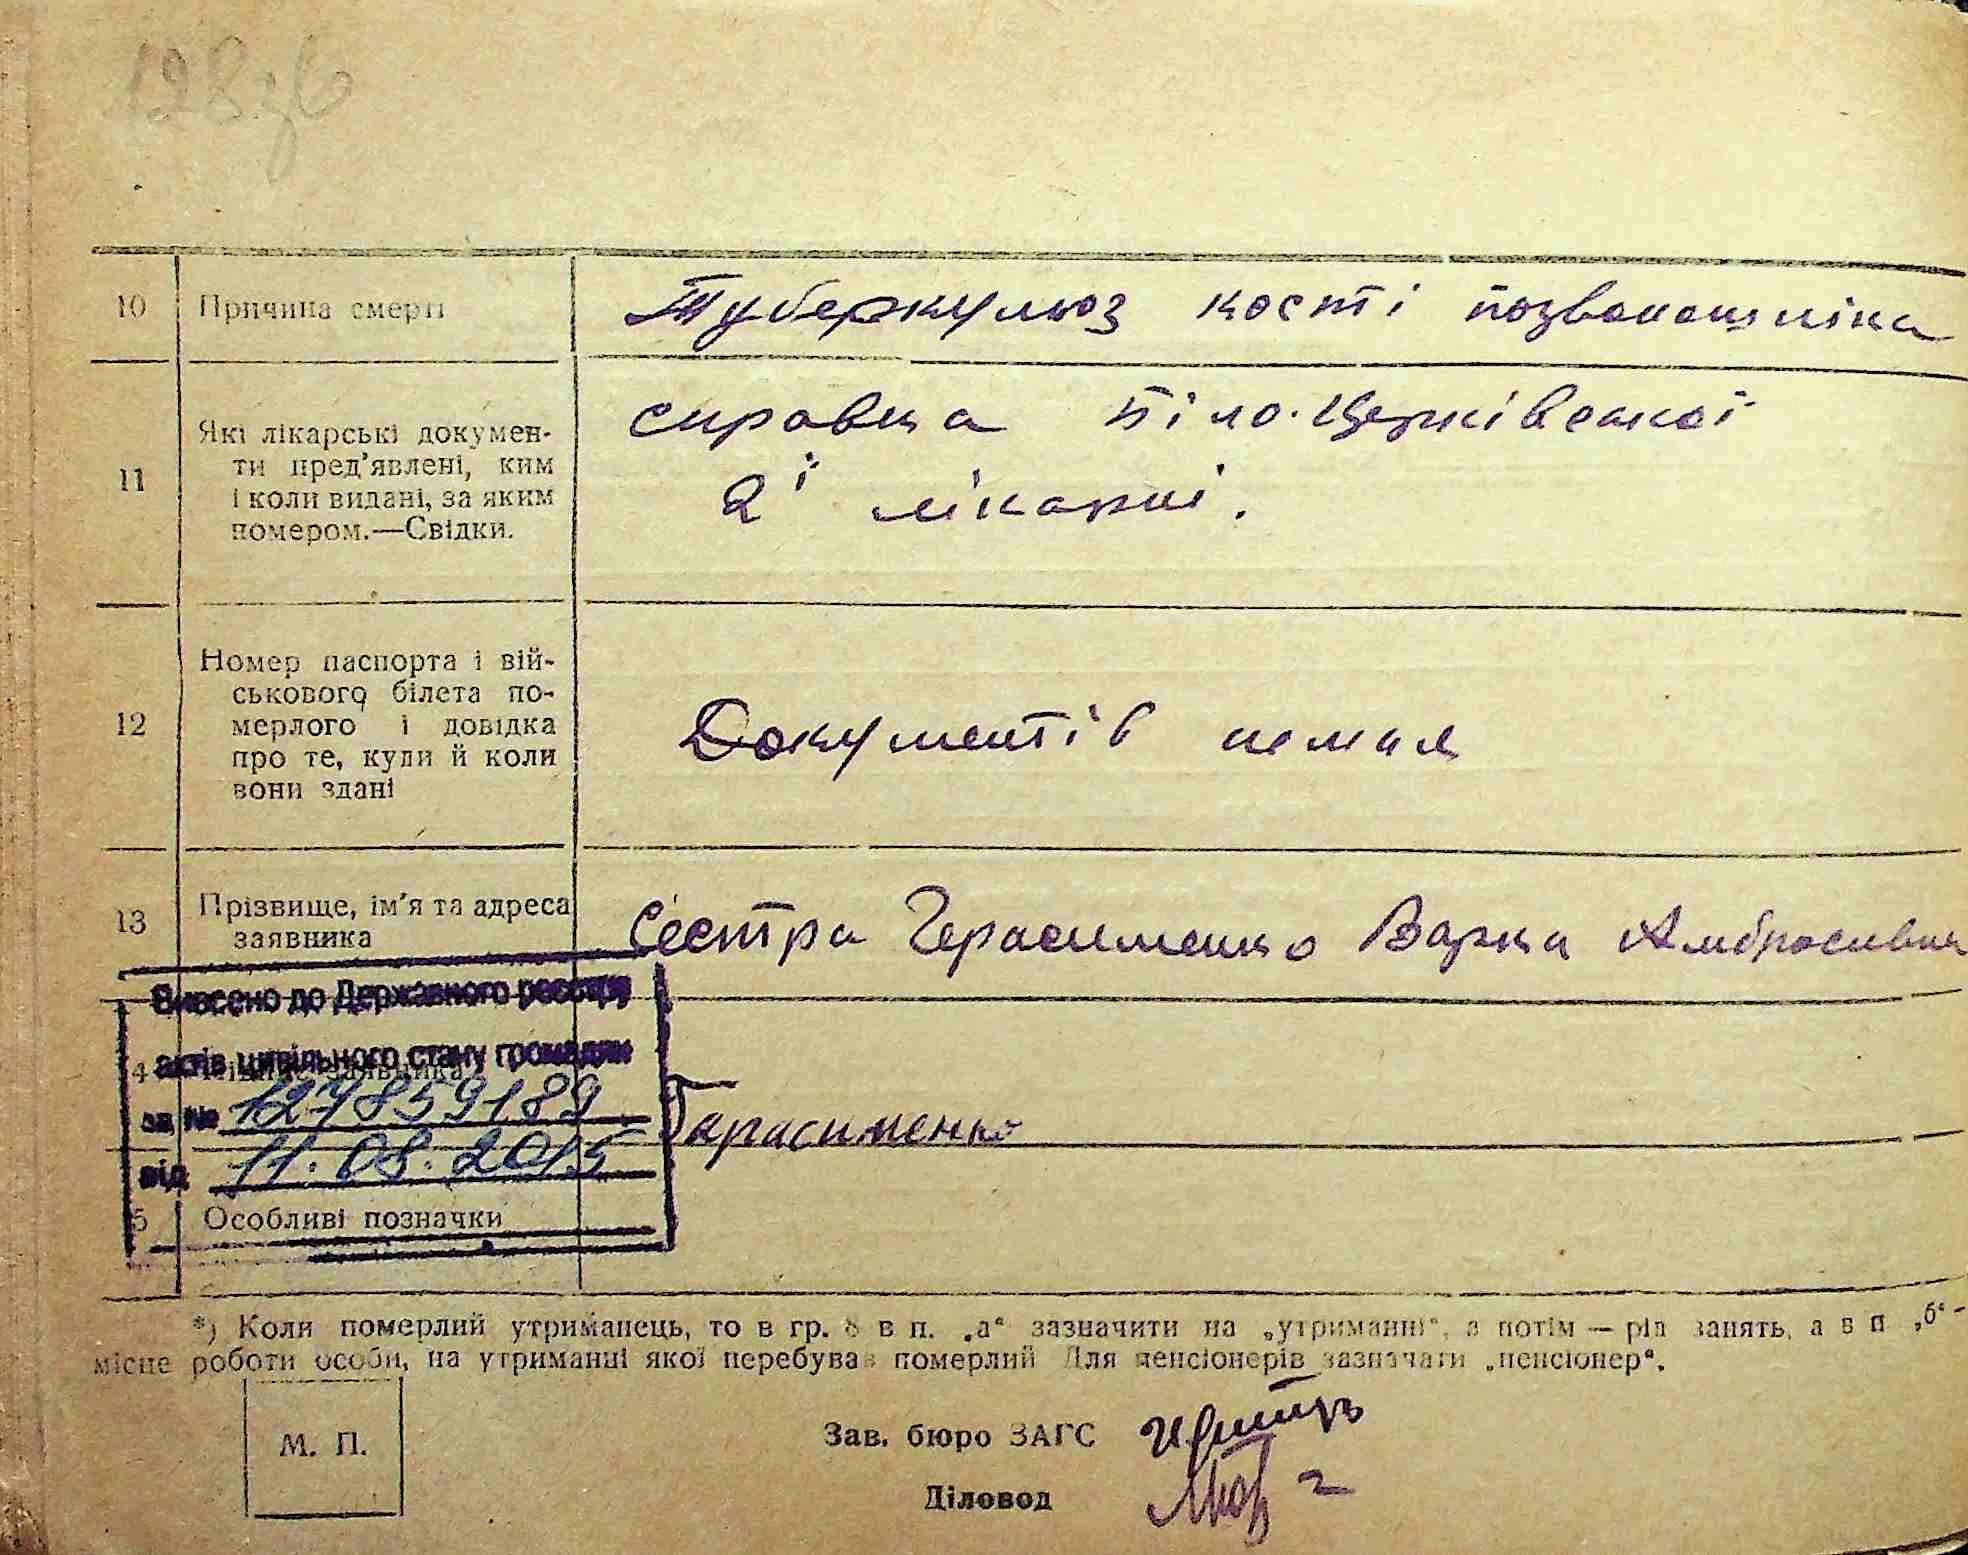 128зв
10 Причина смерті Туберкульоз кості позваношніка
11 Які лікарські докумен-
ти пред'явлені, ким
і коли видані, за яким
номером.—Свідки.
справка Біло-Церківської
2ї лікарні.
12 Номер паспорта і вій-
ськового білета по-
мерлого і довідка
про те, куди й коли
вони здані
Документів немає
13 Прізвище, ім'я та адреса
заявника
Сестра Герасименко Варка Амбросивна
Внесено до Державного реєстру
актів цивільного стану громадян
4 заявника
за № 127859189
Герасименко
від 11.08.2015
5 Особливі позначки
*) Коли померлий утриманець, то в гр. 8 в п. „а“ зазначити на „утриманні“, а потім — рід занять, а в п „б“ -
місце роботи особи, на утриманні якої перебував померлий Для пенсіонерів зазначати „пенсіонер“.
М. П.
Зав. бюро ЗАГС
Діловод